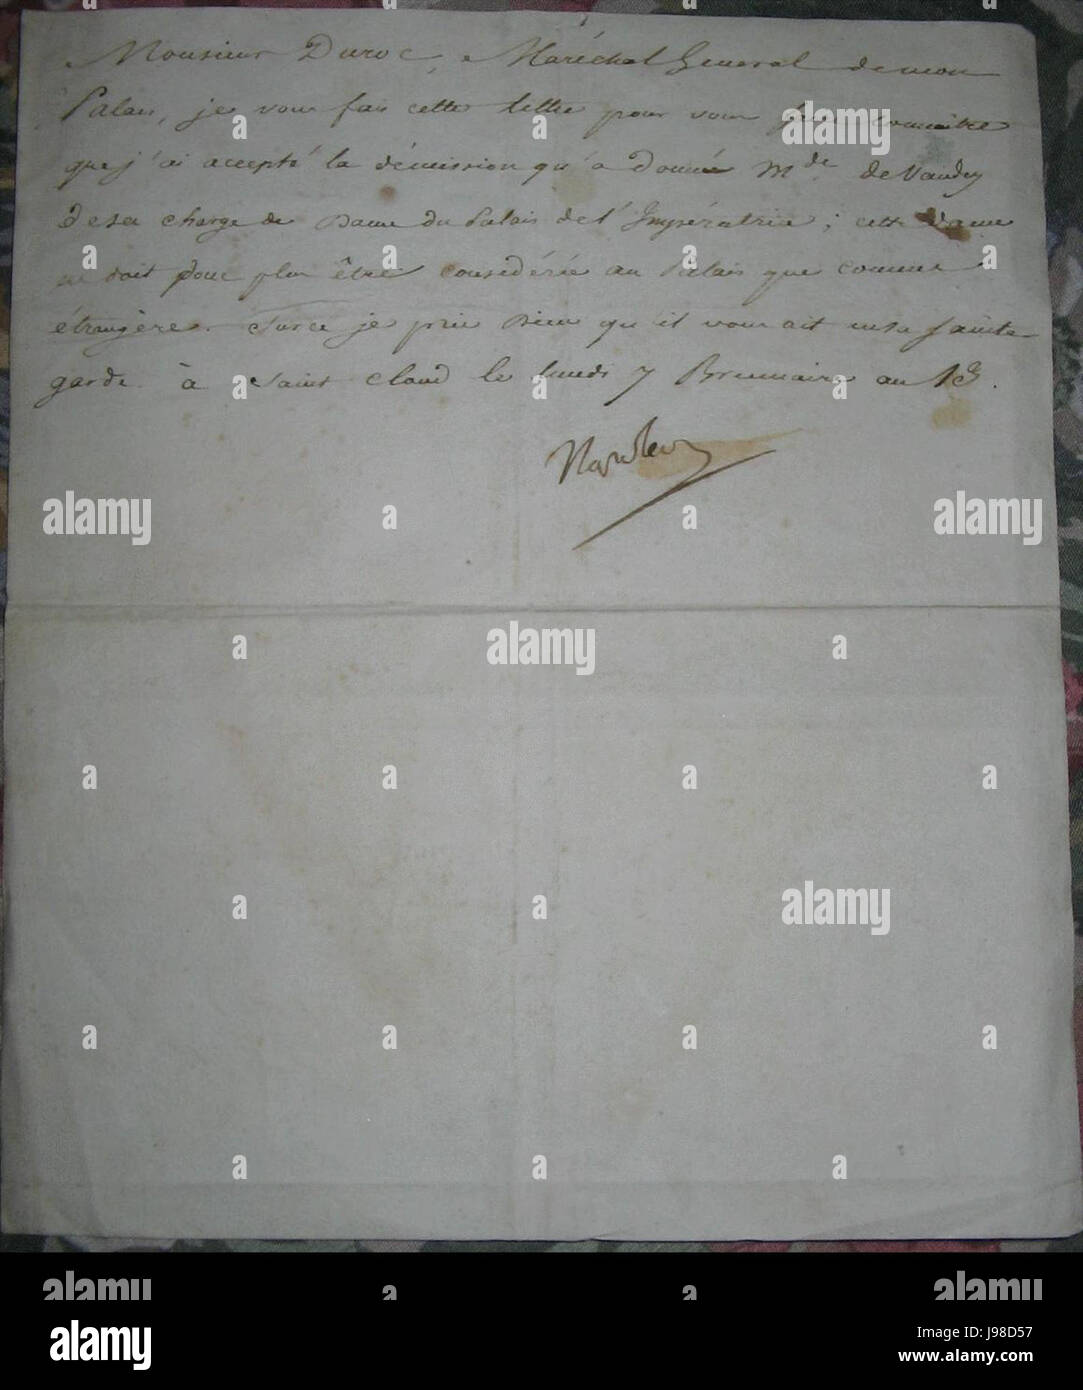 Monsieur Duroc, Maréchal General de mon
Palais, je vous fais cette lettre pour vous faire connaître
que j'ai accepté la démission qu'a donné Mde de Vaudey
de sa charge de Dame du Palais de l'Impératrice ; cette Dame
ne doit donc plus être considérée au Palais que comme
étrangère. Surce je prie Dieu qu'il vous ait en sa sainte
garde. à Saint Cloud le lundi 7 Brumaire an 13.
Napoleon
alamy
alamy
Image ID: J98D57
www.alamy.com